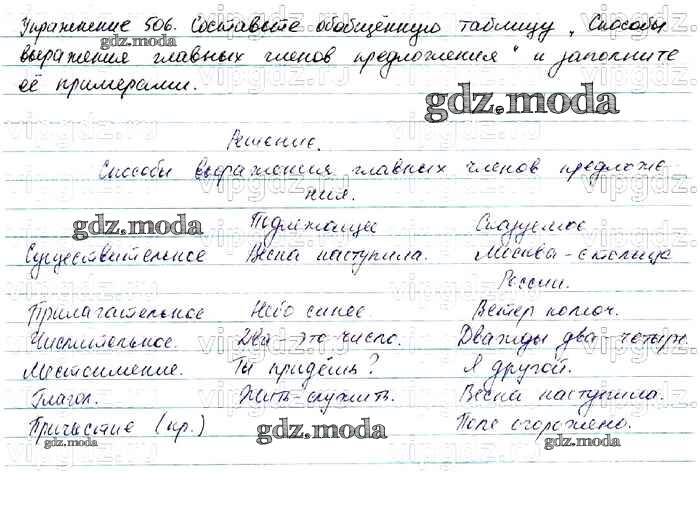 Упражнение 506. Составьте обобщённую таблицу „Способы
выражения главных членов предложения“ и заполните
её примерами.
Решение.
Способы выражения главных членов предложе
ния.
Подлежащее Сказуемое
Существительное Весна наступила. Москва - столица
России.
Прилагательное Небо синее. Ветер колюч.
Числительное. Два - это число. Дважды два - четыре.
Местоимение. Ты придёшь? Я другой.
Глагол. Жить - служить. Весна наступила.
Причастие (кр.) Поле огорожено.
gdz.moda
gdz.moda
gdz.moda
gdz.moda
gdz.moda
gdz.moda